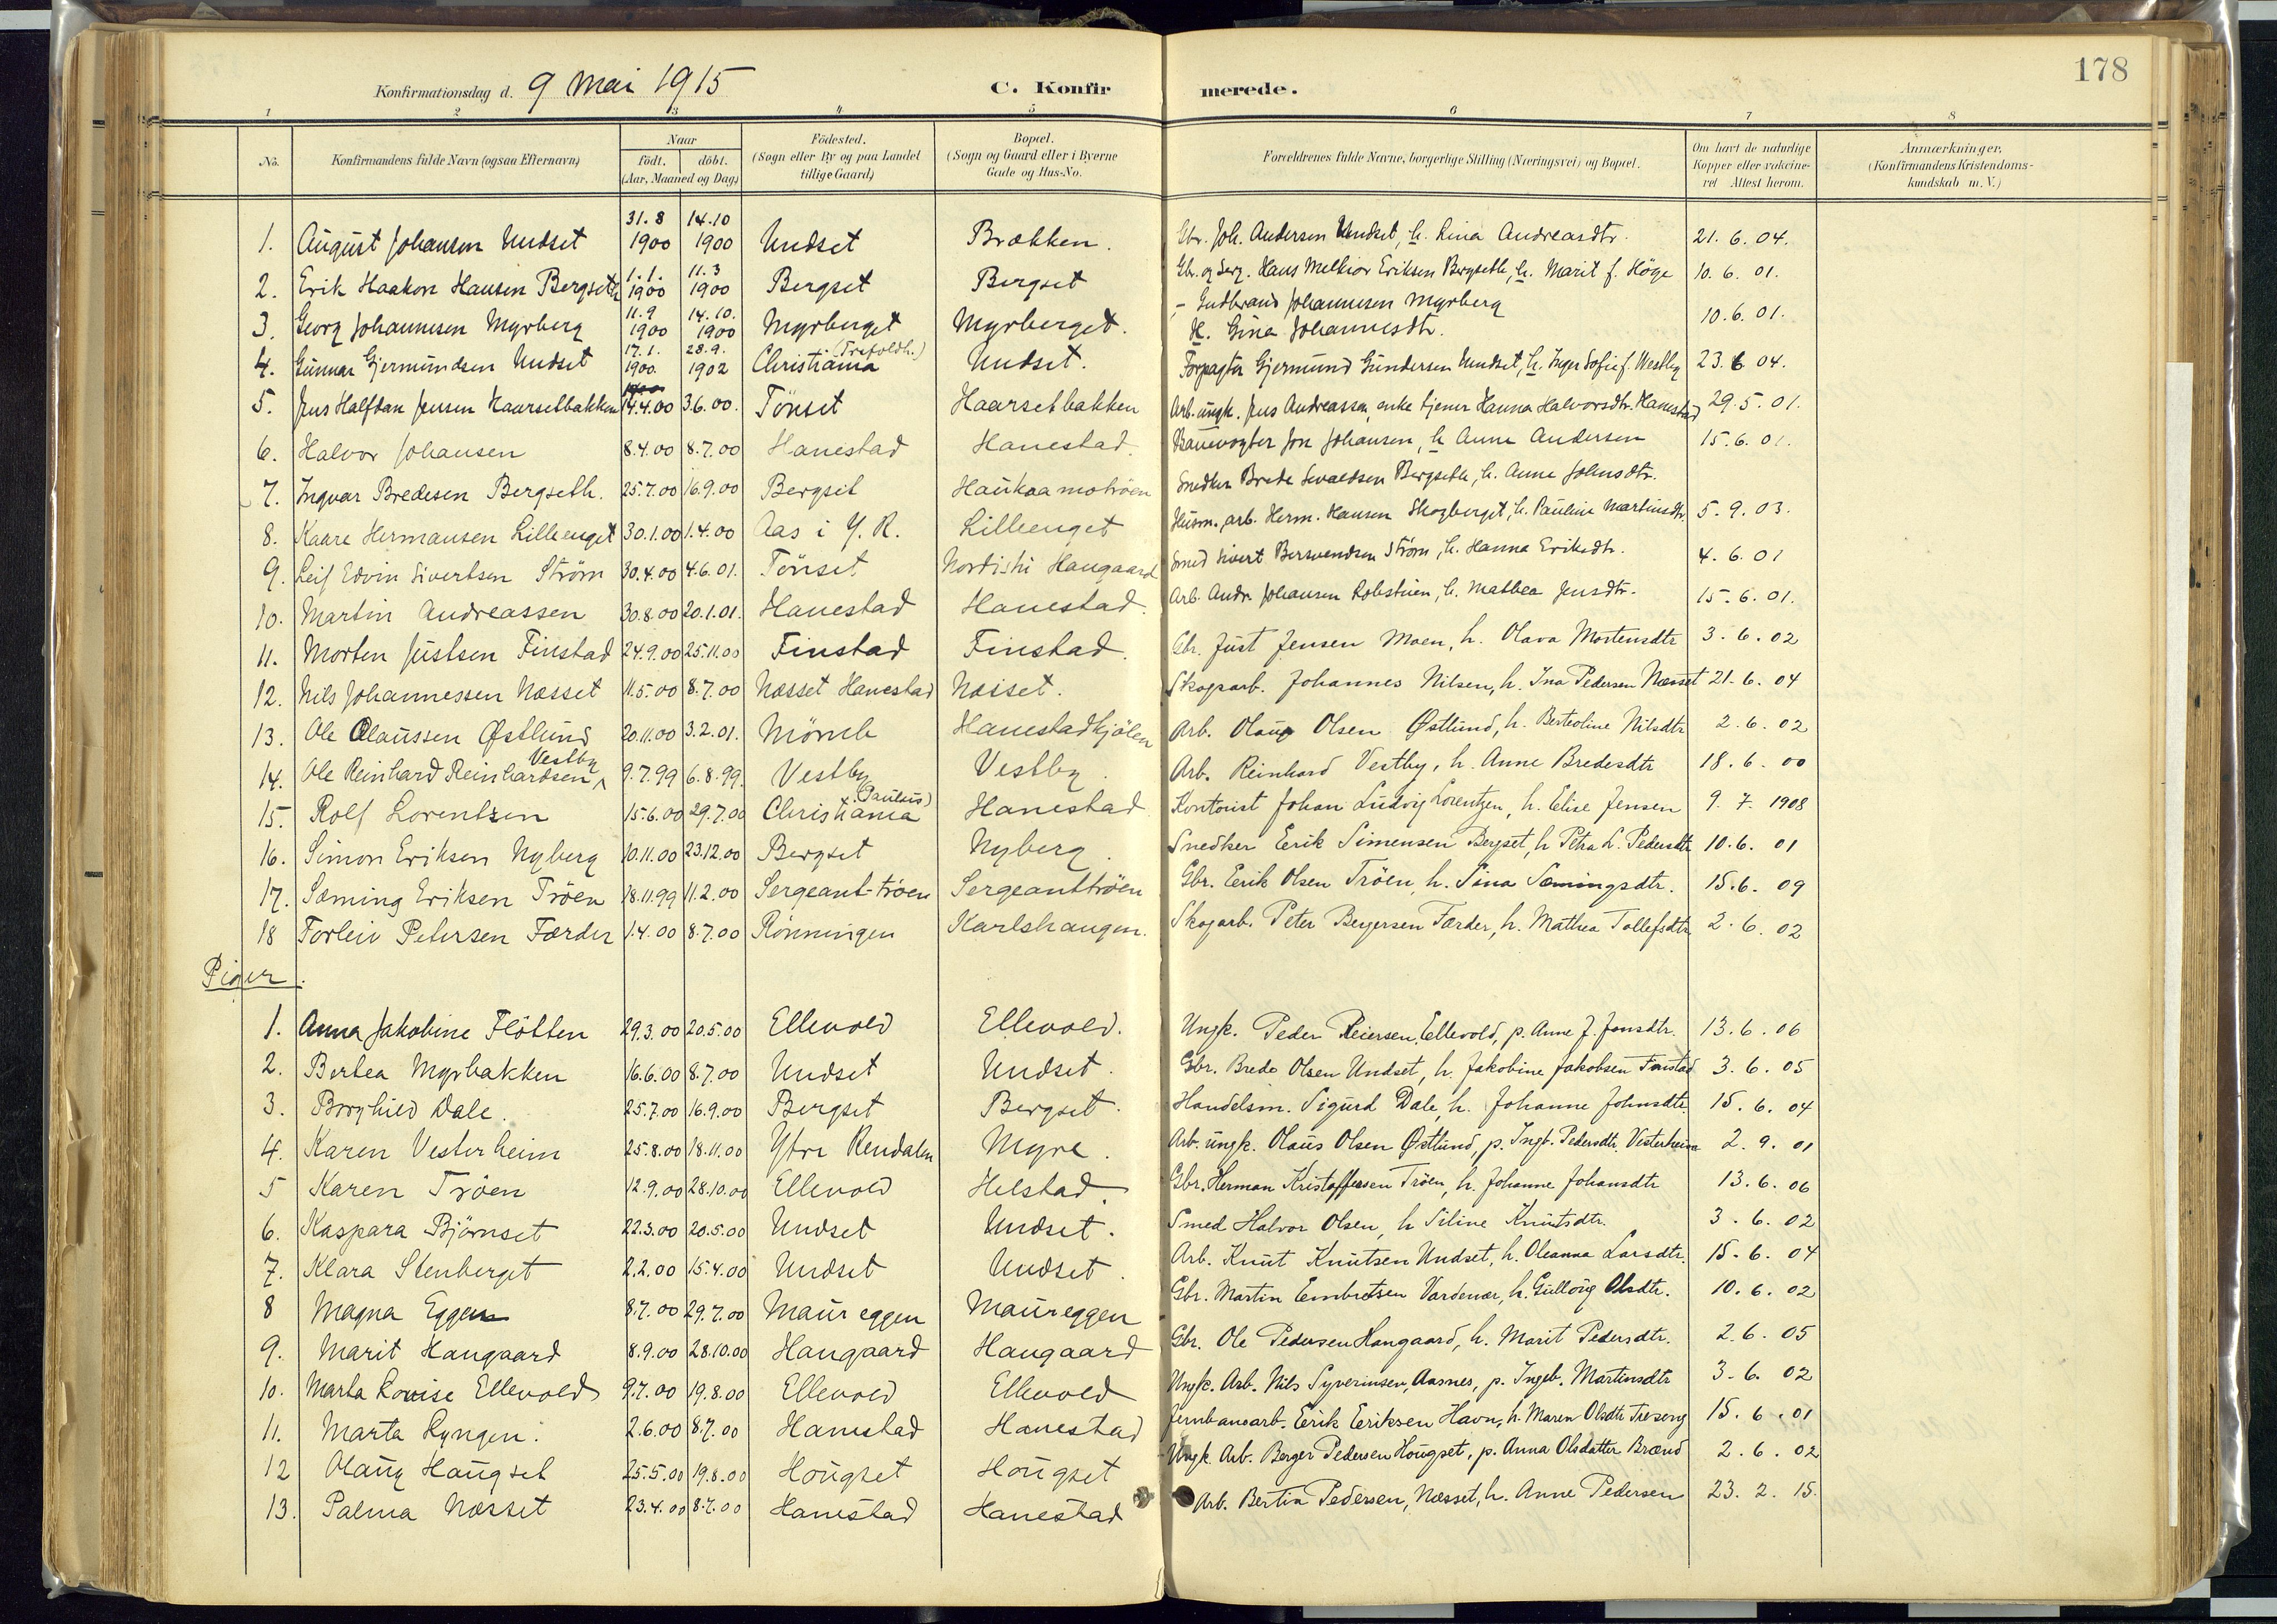 178
Konfirmationsdag d. 9 Mai 1915 C. Konfirmerede.
1 2 3 4 5 6 7 8
No. Konfirmandens fulde Navn (ogsaa Efternavn) Naar födt. döbt. (Aar, Maaned og Dag.) Födested. (Sogn eller By og paa Landet tillige Gaard) Bopæl. (Sogn og Gaard eller i Byerne Gade og Hus-No. Forældrenes fulde Navne, borgerlige Stilling (Næringsvei) og Bopæl. Om havt de naturlige Kopper eller vakcineret Attest herom. Anmærkninger. (Konfirmandens Kristendomskundskab m. V.)
1. August Johansen Undset 31.8 1900 14.10 1900 Undset Brækken. Gbr. Joh. Andersen Undset, h. Lina Andreasdtr. 21. 6. 04.
2. Erik Haakon Hansen Bergseth 1.1. 1900 11.3 1900 Bergset Bergset Gbr. og Serg. Hans Melkior Eriksen Bergseth, h. Marit f. Höge 10. 6. 01.
3. Georg Johannesen Myrberg 11.9 1900 14.10. 1900 Myrberget Myrberget. - Gudbrand Johannesen Myrberg H. Gina Johannesdtr. 10. 6. 01.
4. Gunnar Gjermundsen Undset 17.1. 1900. 28.9. 1902 Christiania (Trefoldh.) Undset. Forpagter Gjermund Gundersen Undset, h. Inger Sofie f. Westby 23. 6 04.
5. Jens Halfdan Jensen Haarsetbakken 14.4.00 3.6.00. Tönset Haarsetbakken Arb. ungk. Jens Andreassen, enke tjener Hanna Halvorsdtr. Hanestad 29. 5. 01.
6. Halvor Johansen 8.4.00 8.7.00 Hanestad Hanestad. Banevogter Jon Johansen, h Anne Andersen 15. 6. 01.
7. Ingvar Bredesen Bergseth. 25.7.00 16.9.00 Bergset Haukaamotröen Snedker Brede Sevaldsen Bergseth, h. Anne Johnsdtr.
8. Kaare Hermansen Lilleenget 30.1.00 1.4.00 Aas i Y. R. Lilleenget Husm., arb. Herm. Hansen Skogberget, h. Pauline Martinsdtr. 5. 9. 03.
9. Leif Edvin Sivertsen Ström 30.4.00 4.6.01. Tönset Nordistu Haugaard Smed Sivert Bersvendsen Ström, h. Hanna Eriksdtr. 4. 6. 01
10. Martin Andreassen 30.8.00 20.1.01. Hanestad Hanestad. Arb. Andr. Johansen Robstuen, h. Mathea Jensdtr. 15. 6. 01.
11. Morten Justsen Finstad 24.9.00 25.11.00 Finstad Finstad. Gbr. Just Jensen Moen, h. Olava Mortensdtr 3. 6. 02
12. Nils Johannessen Næsset 11.5.00 8.7.00 Næsset Hanestad Næsset. Skogsarb. Johannes Nilsen, h. Ina Pedersen Næsset 21. 6. 04
13. Ole Olaussen Østlund 20.11.00 3.2.01. Mömb Hanestadkjölen Arb. Olaus Olsen Østlund, h. Berteoline Nilsdtr 2. 6. 02
14. Ole Reinhard Reinhardsen Vestby 9.7.99 6.8.99. Vestby Vestby. Arb. Reinhard Vestby, h. Anne Bredesdtr 18. 6. 00
15. Rolf Lorentzen 15.6.00 29.7.00 Christiania (Paulus) Hanestad Kontorist Johan Ludvig Lorentzen, h. Elise Jensen 9. 7. 1908
16. Simon Eriksen Nyberg 10.11.00 23.12.00 Bergset Nyberg. Snedker Erik Simensen Bergset, h Petra L. Pedersdtr 10. 6. 01
17. Sæming Eriksen Tröen 18.11.99 11.2.00 Sergeant-tröen Sergeanttröen Gbr. Erik Olsen Tröen, h. Sina Sæmingsdtr. 15. 6. 09
18 Torleiv Petersen Færder 1.4.00 8.7.00 Rönningen Karlshaugen. Skogarb. Peter Bergersen Færder, h. Mathea Tollefsdtr 2. 6. 02
Piger.
1. Anna Jakobine Flötten 29.3.00 20.5.00 Ellevold Ellevold. Ungk. Peder Reiersen Ellevold, p. Anne J. Jonsdtr. 13. 6. 06
2. Bertea Myrbakken 16.6.00 8.7.00 Undset Undset. Gbr. Brede Olsen Undset, h. Jakobine Jakobsen Finstad 3. 6. 05
3. Borghild Dale. 25.7.00 16.9.00 Bergset Bergset. Handelsm. Sigurd Dale, h. Johanne Johnsdtr. 15. 6. 04
4. Karen Vesterheim 25.8.00 18.11.00 Ytre Rendalen Myre. Arb. ungk. Olaus Olsen Østlund, p. Ingb. Pedersdtr. Vesterheim 2. 9. 01
5 Karen Tröen 12.9.00 28.10.00 Ellevold Helstad. Gbr. Herman Kristoffersen Tröen, h. Johanne Johansdtr 13. 6. 06
6. Kaspara Björnset 22.3.00 20.5.00 Undset Undset. Smed Halvor Olsen, h Siline Knutsdtr. 3. 6. 02
7. Klara Stenberget 2.2.00 15.4.00 Undset Undset. Arb. Knut Knutsen Undset, h. Oleanna Larsdtr. 15. 6. 04
8 Magna Eggen 8.7.00 29.7.00 Maureggen Maureggen Gbr. Martin Embretsen Vardenær, h. Gullaug Olsdtr. 10. 6. 02
9. Marit Haugaard 8.9.00 28.10.00 Haugaard Haugaard Gbr. Ole Pedersen Haugaard, h. Marit Pedersdtr. 2. 6. 05
10. Marta Lovise Ellevold 9.7.00 19.8.00 Ellevold Ellevold Ungk. Arb. Nils Syverinsen, Aasnes, p. Ingeb. Martinsdtr 3. 6. 02
11. Marta Lyngen. 2.6.00 8.7.00 Hanestad Hanestad Jernbanearb. Erik Eriksen Havn, h. Maren Olsdtr Treseng 15. 6. 01
12 Olaug Haugset 25.5.00 19.8.00 Hougset Hougset Ungk. Arb. Berger Pedersen Hougset, p. Anna Olsdatter Brænd 2. 6. 02
13. Palma Næsset 23.4.00 8.7.00 Hanestad Hanestad Arb. Bertin Pedersen, Næsset, h. Anne Pedersen 23. 2. 15.